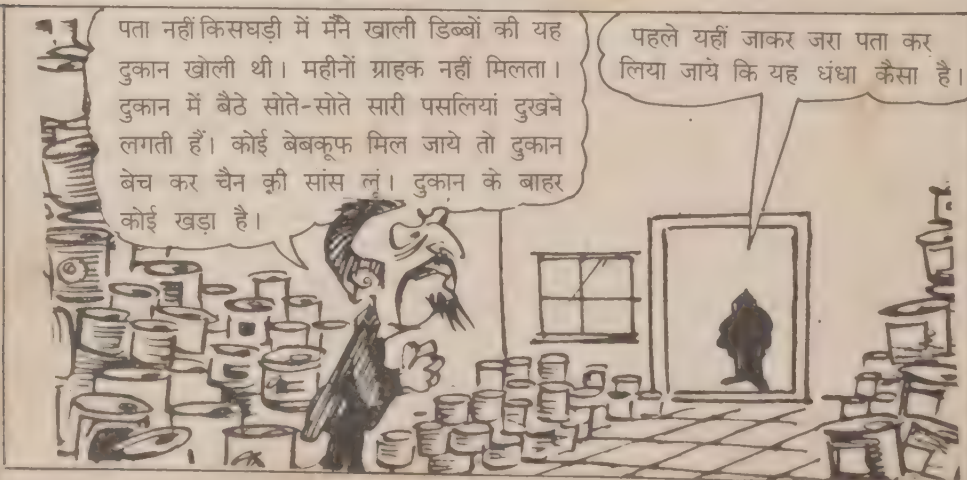 पता नहीं किसघड़ी में मैंने खाली डिब्बों की यह
दुकान खोली थी। महीनों ग्राहक नहीं मिलता।
दुकान में बैठे सोते-सोते सारी पसलियां दुखने
लगती हैं। कोई बेबकूफ मिल जाये तो दुकान
बेच कर चैन की सांस लूं। दुकान के बाहर
कोई खड़ा है।
पहले यहीं जाकर जरा पता कर
लिया जाये कि यह धंधा कैसा है।